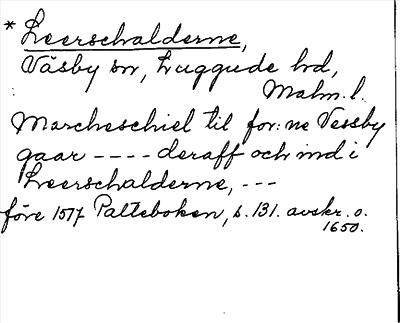 * Leerschalderne,
Väsby sn, Luggude hd,
Malm. l.
Marcheschiel til for: ne Vessby
gaar ---- deraff och ind i
Leerschalderne, ---
före 1577 Palteboken, s. 131. avskr. o.
1650.